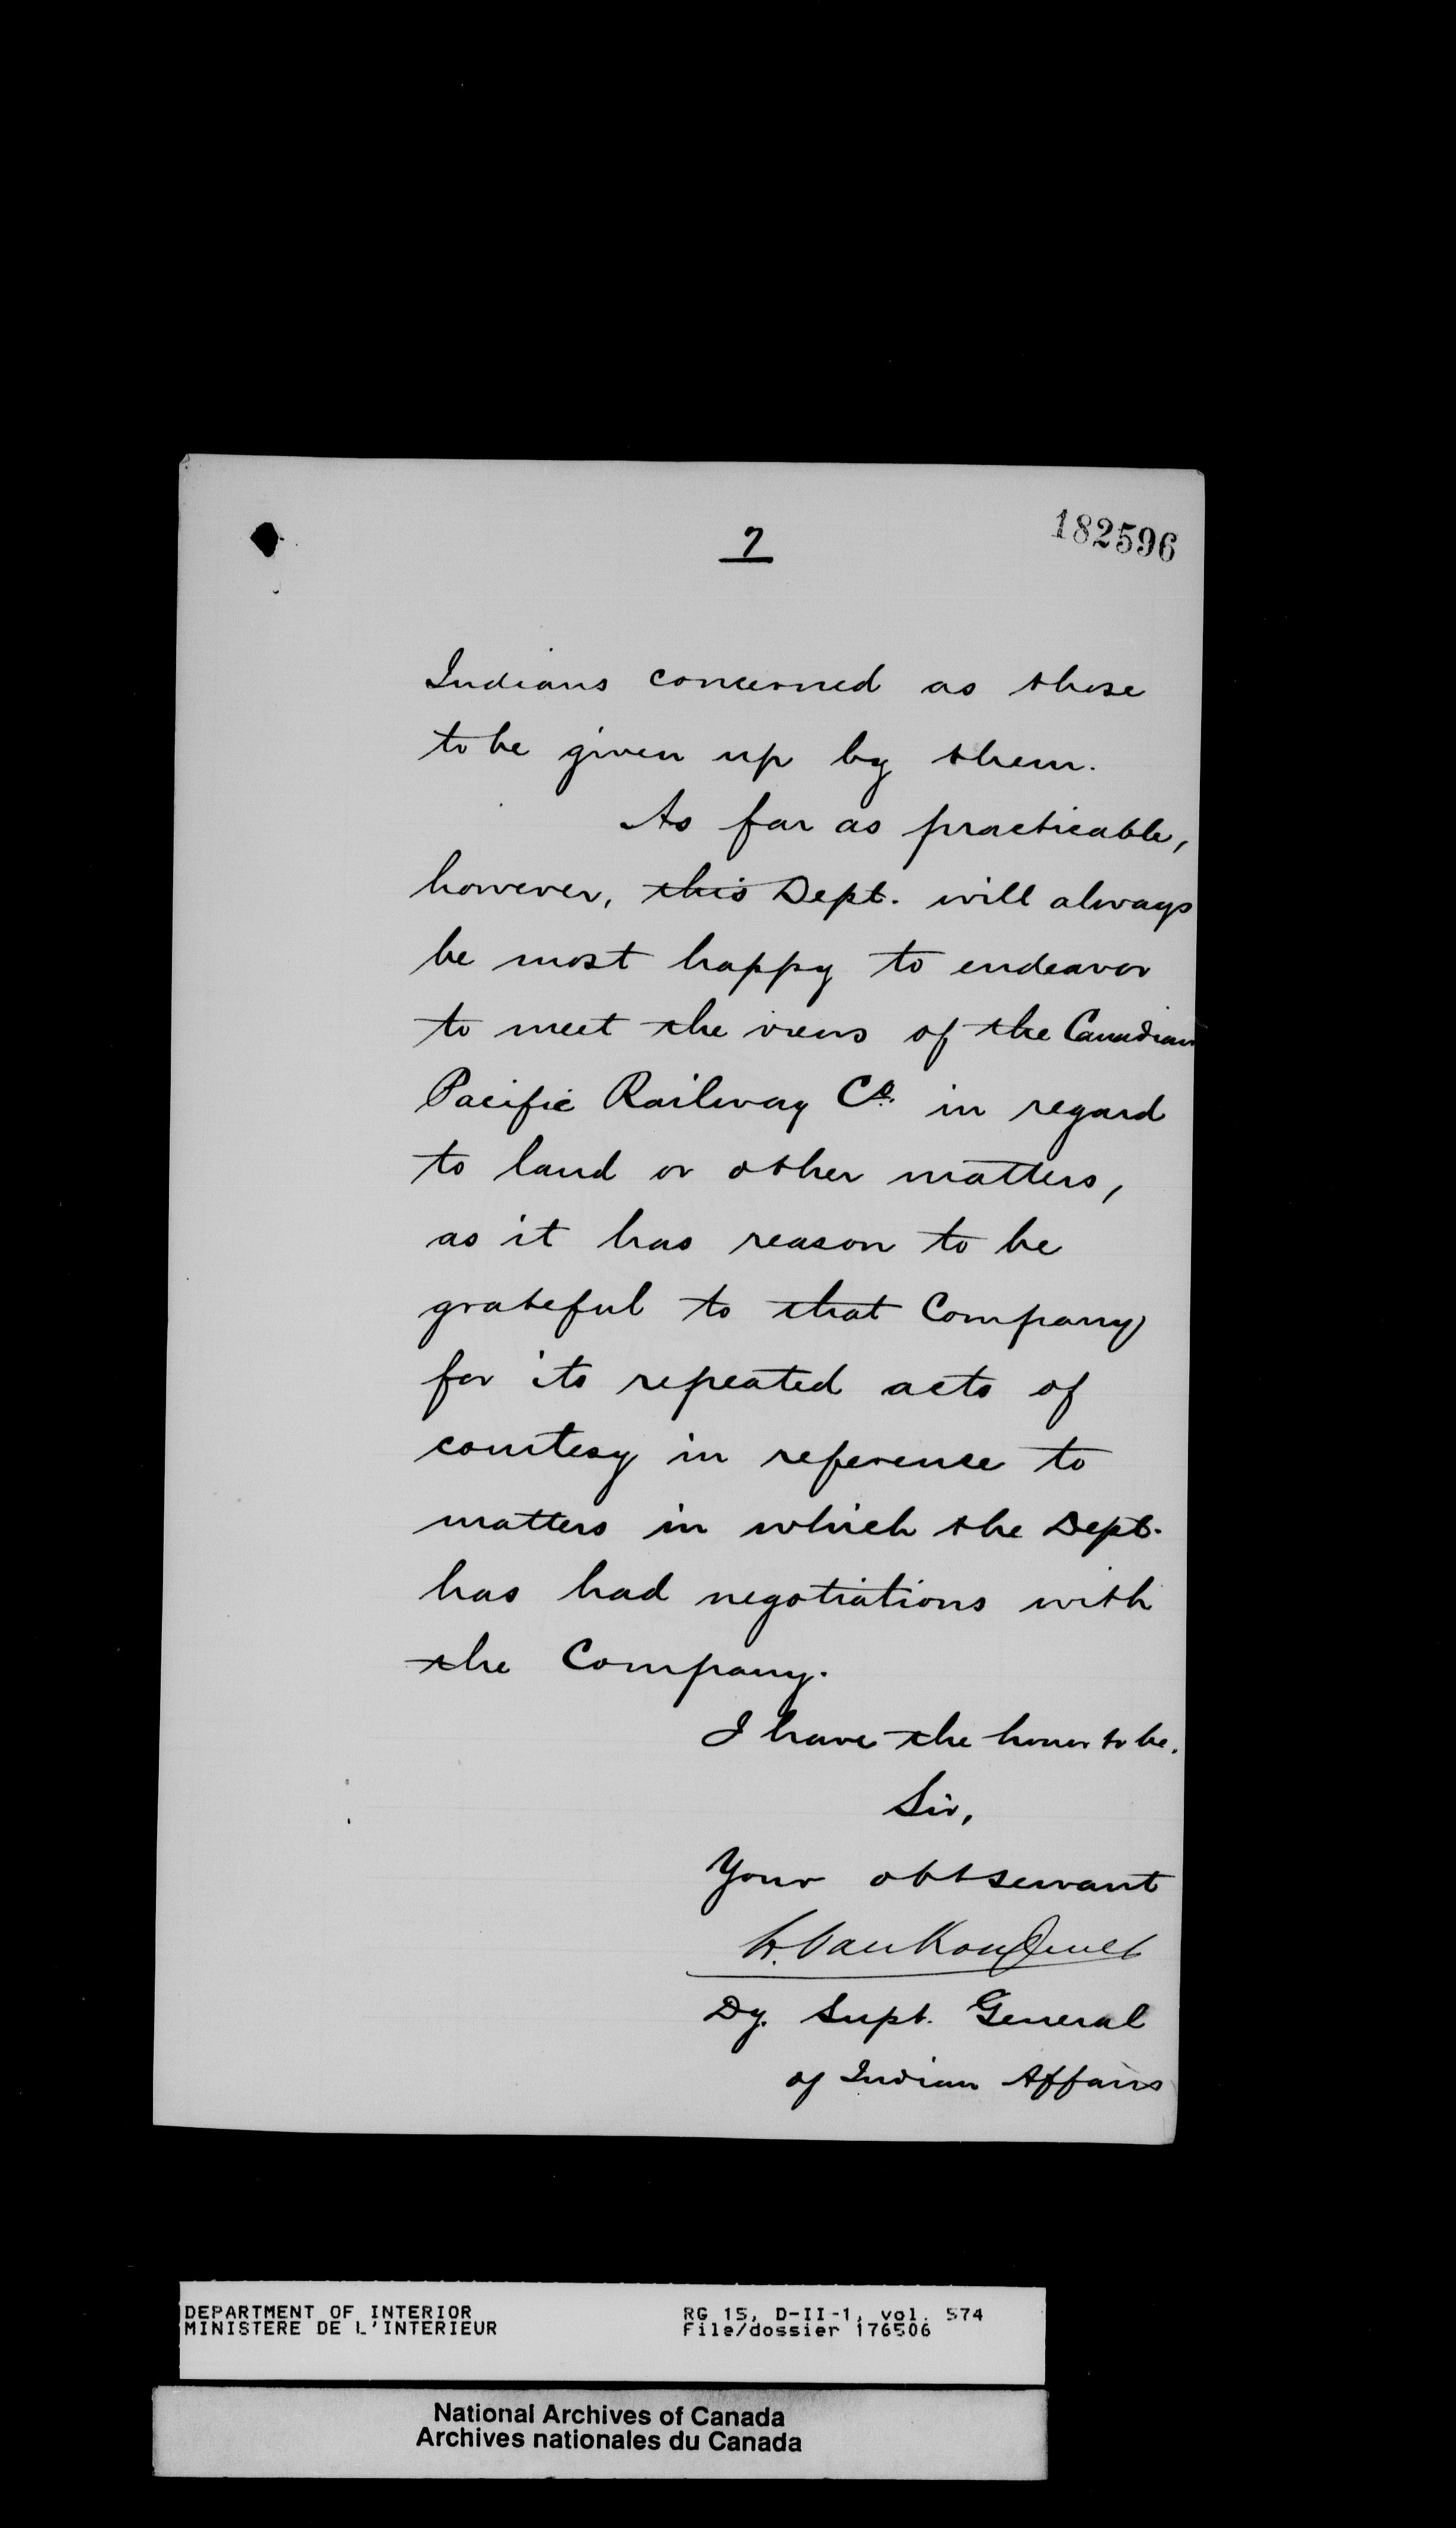 7
182596
Indians concerned as those
to be given up by them.
As far as practicable,
however, this Dept. will always
be most happy to endeavor
to meet the views of the Canadian
Pacific Railway Co. in regard
to land or other matters,
as it has reason to be
grateful to that Company
for its repeated acts of
courtesy in reference to
matters in which the Dept.
has had negotiations with
the Company.
I have the honor to be.
Sir,
Your obt servant
L. VanKoughnet
Dy. Supt. General
of Indian Affairs
DEPARTMENT OF INTERIOR RG 15, D-II-1, vol. 574
MINISTERE DE L'INTERIEUR File/dossier 176506
National Archives of Canada
Archives nationales du Canada